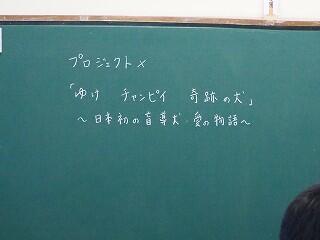 プロジェクトX
「ゆけ チャンピイ 奇跡の犬」
～日本初の盲導犬・愛の物語～